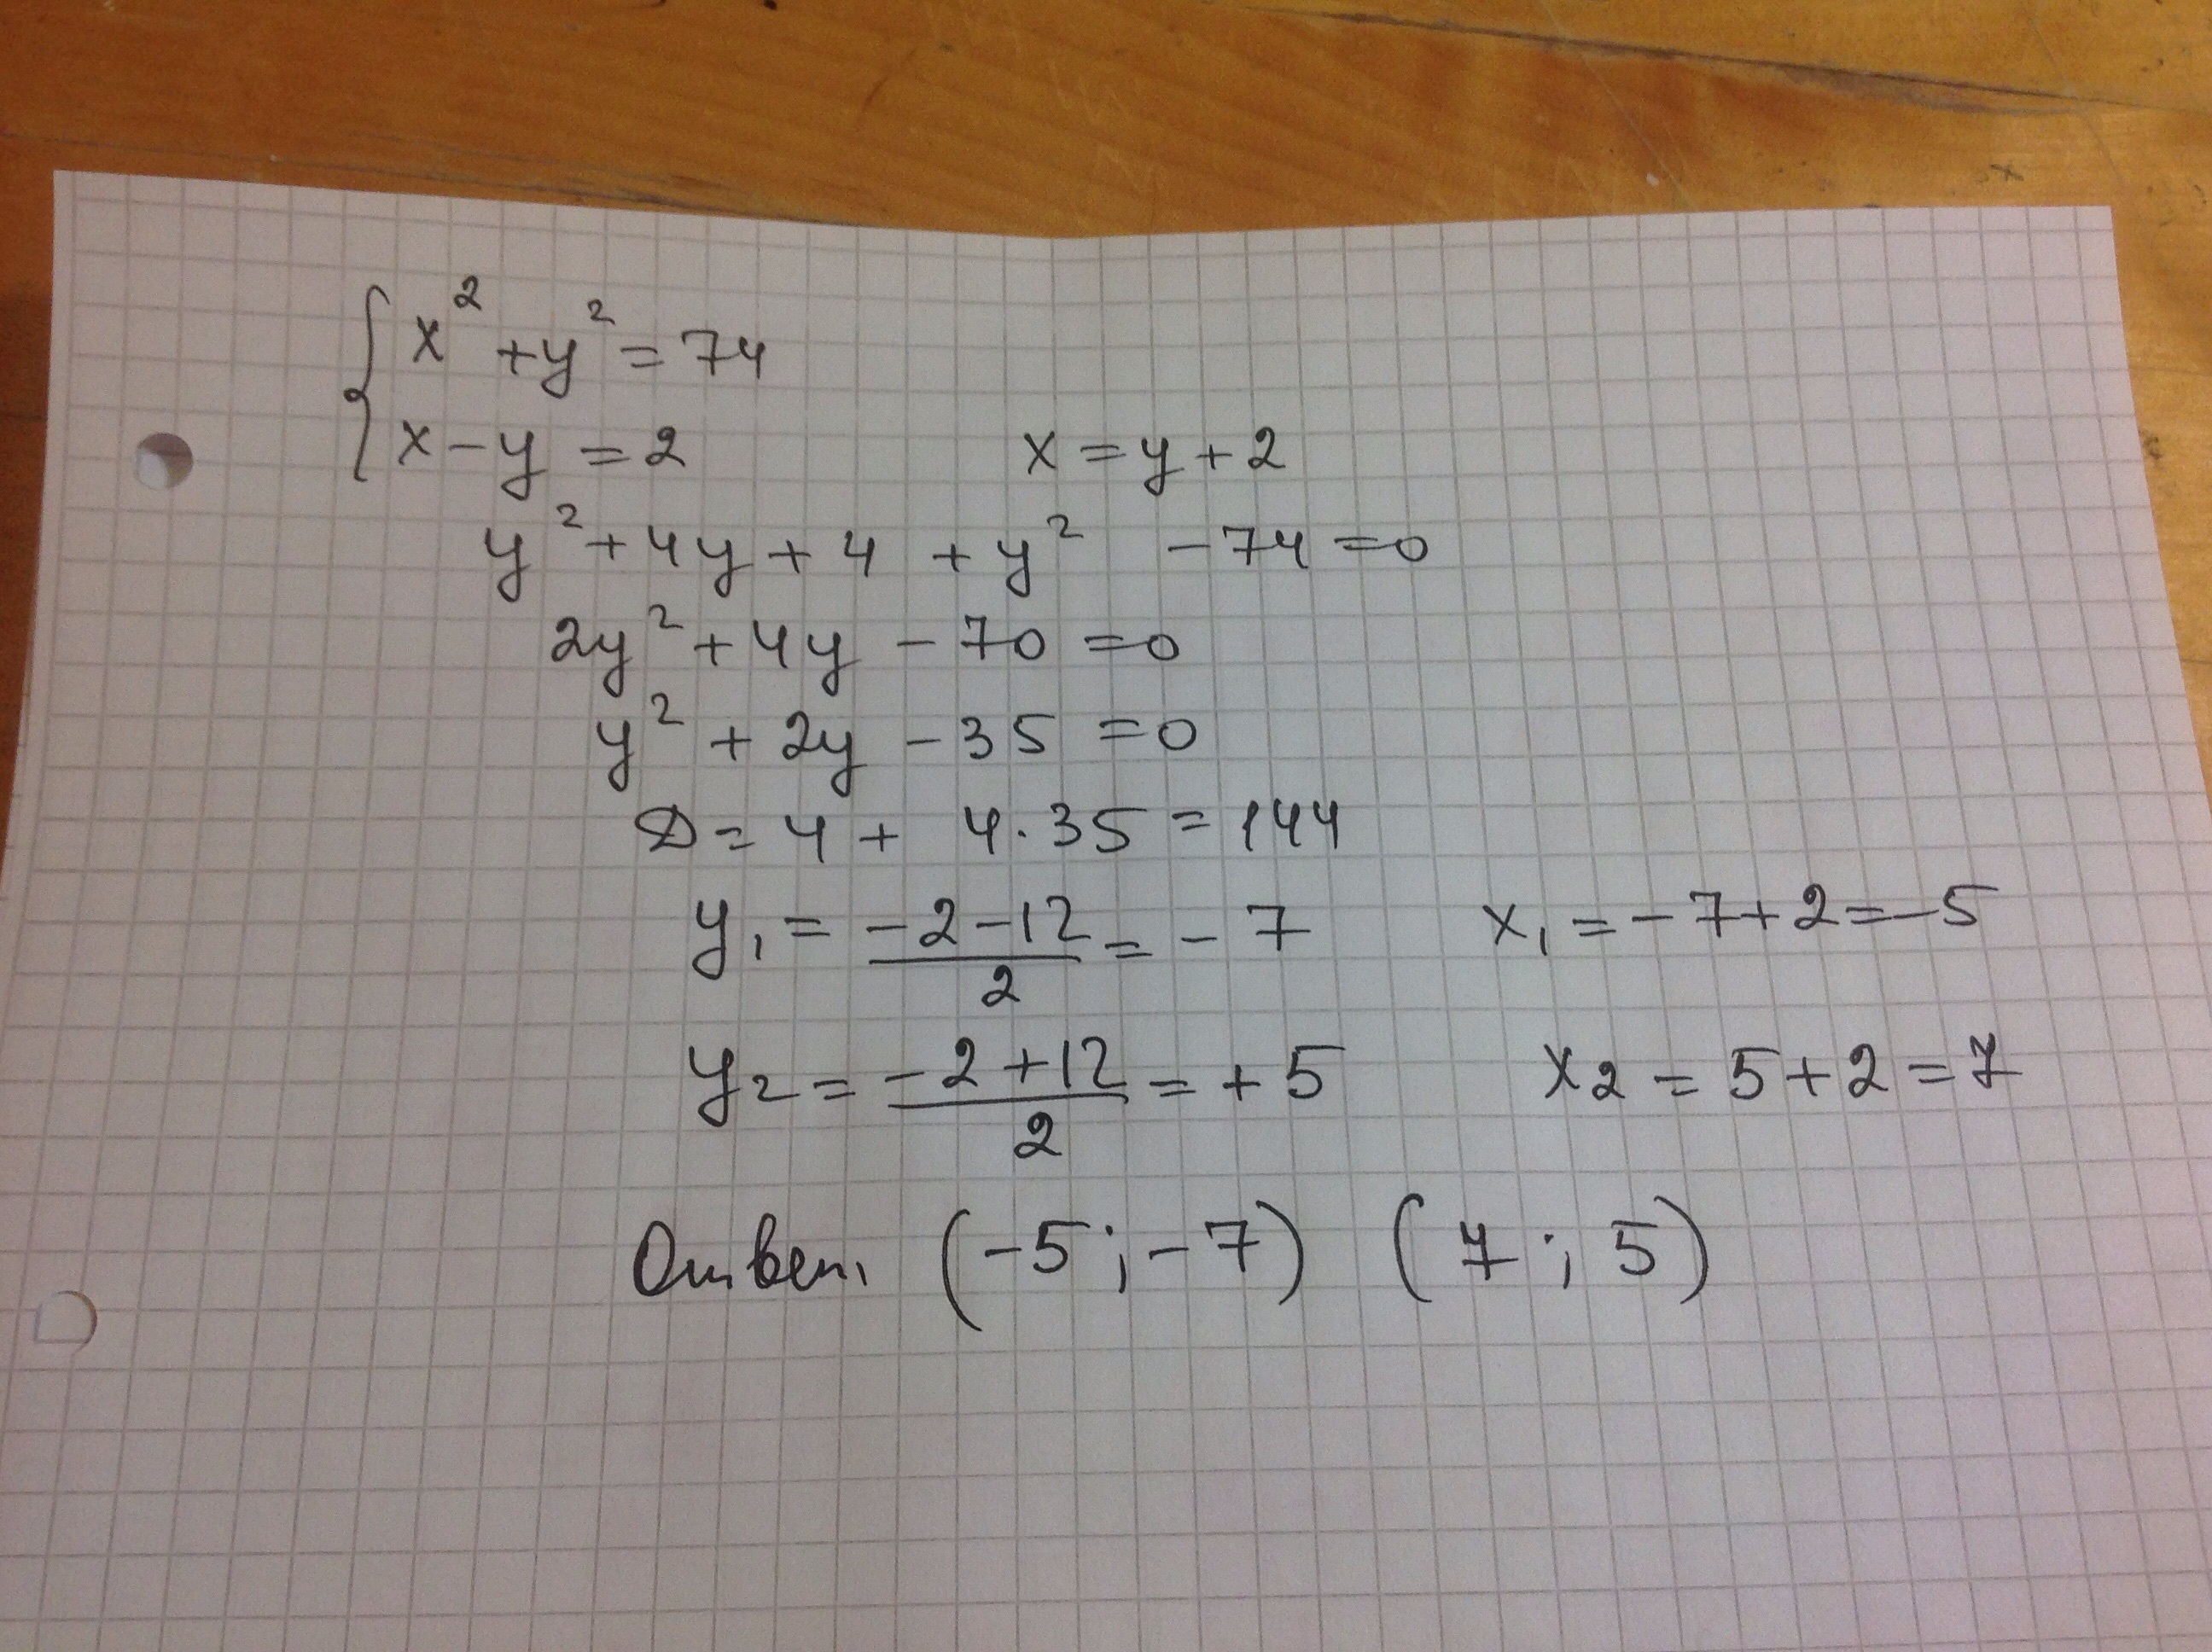 { x² + y² = 74
x - y = 2    x = y + 2
y² + 4y + 4 + y² - 74 = 0
2y² + 4y - 70 = 0
y² + 2y - 35 = 0
D = 4 + 4 · 35 = 144
y₁ = (-2 - 12)/2 = - 7    x₁ = - 7 + 2 = -5
y₂ = (-2 + 12)/2 = + 5    x₂ = 5 + 2 = 7
Ответ (-5 ; -7) (7 ; 5)